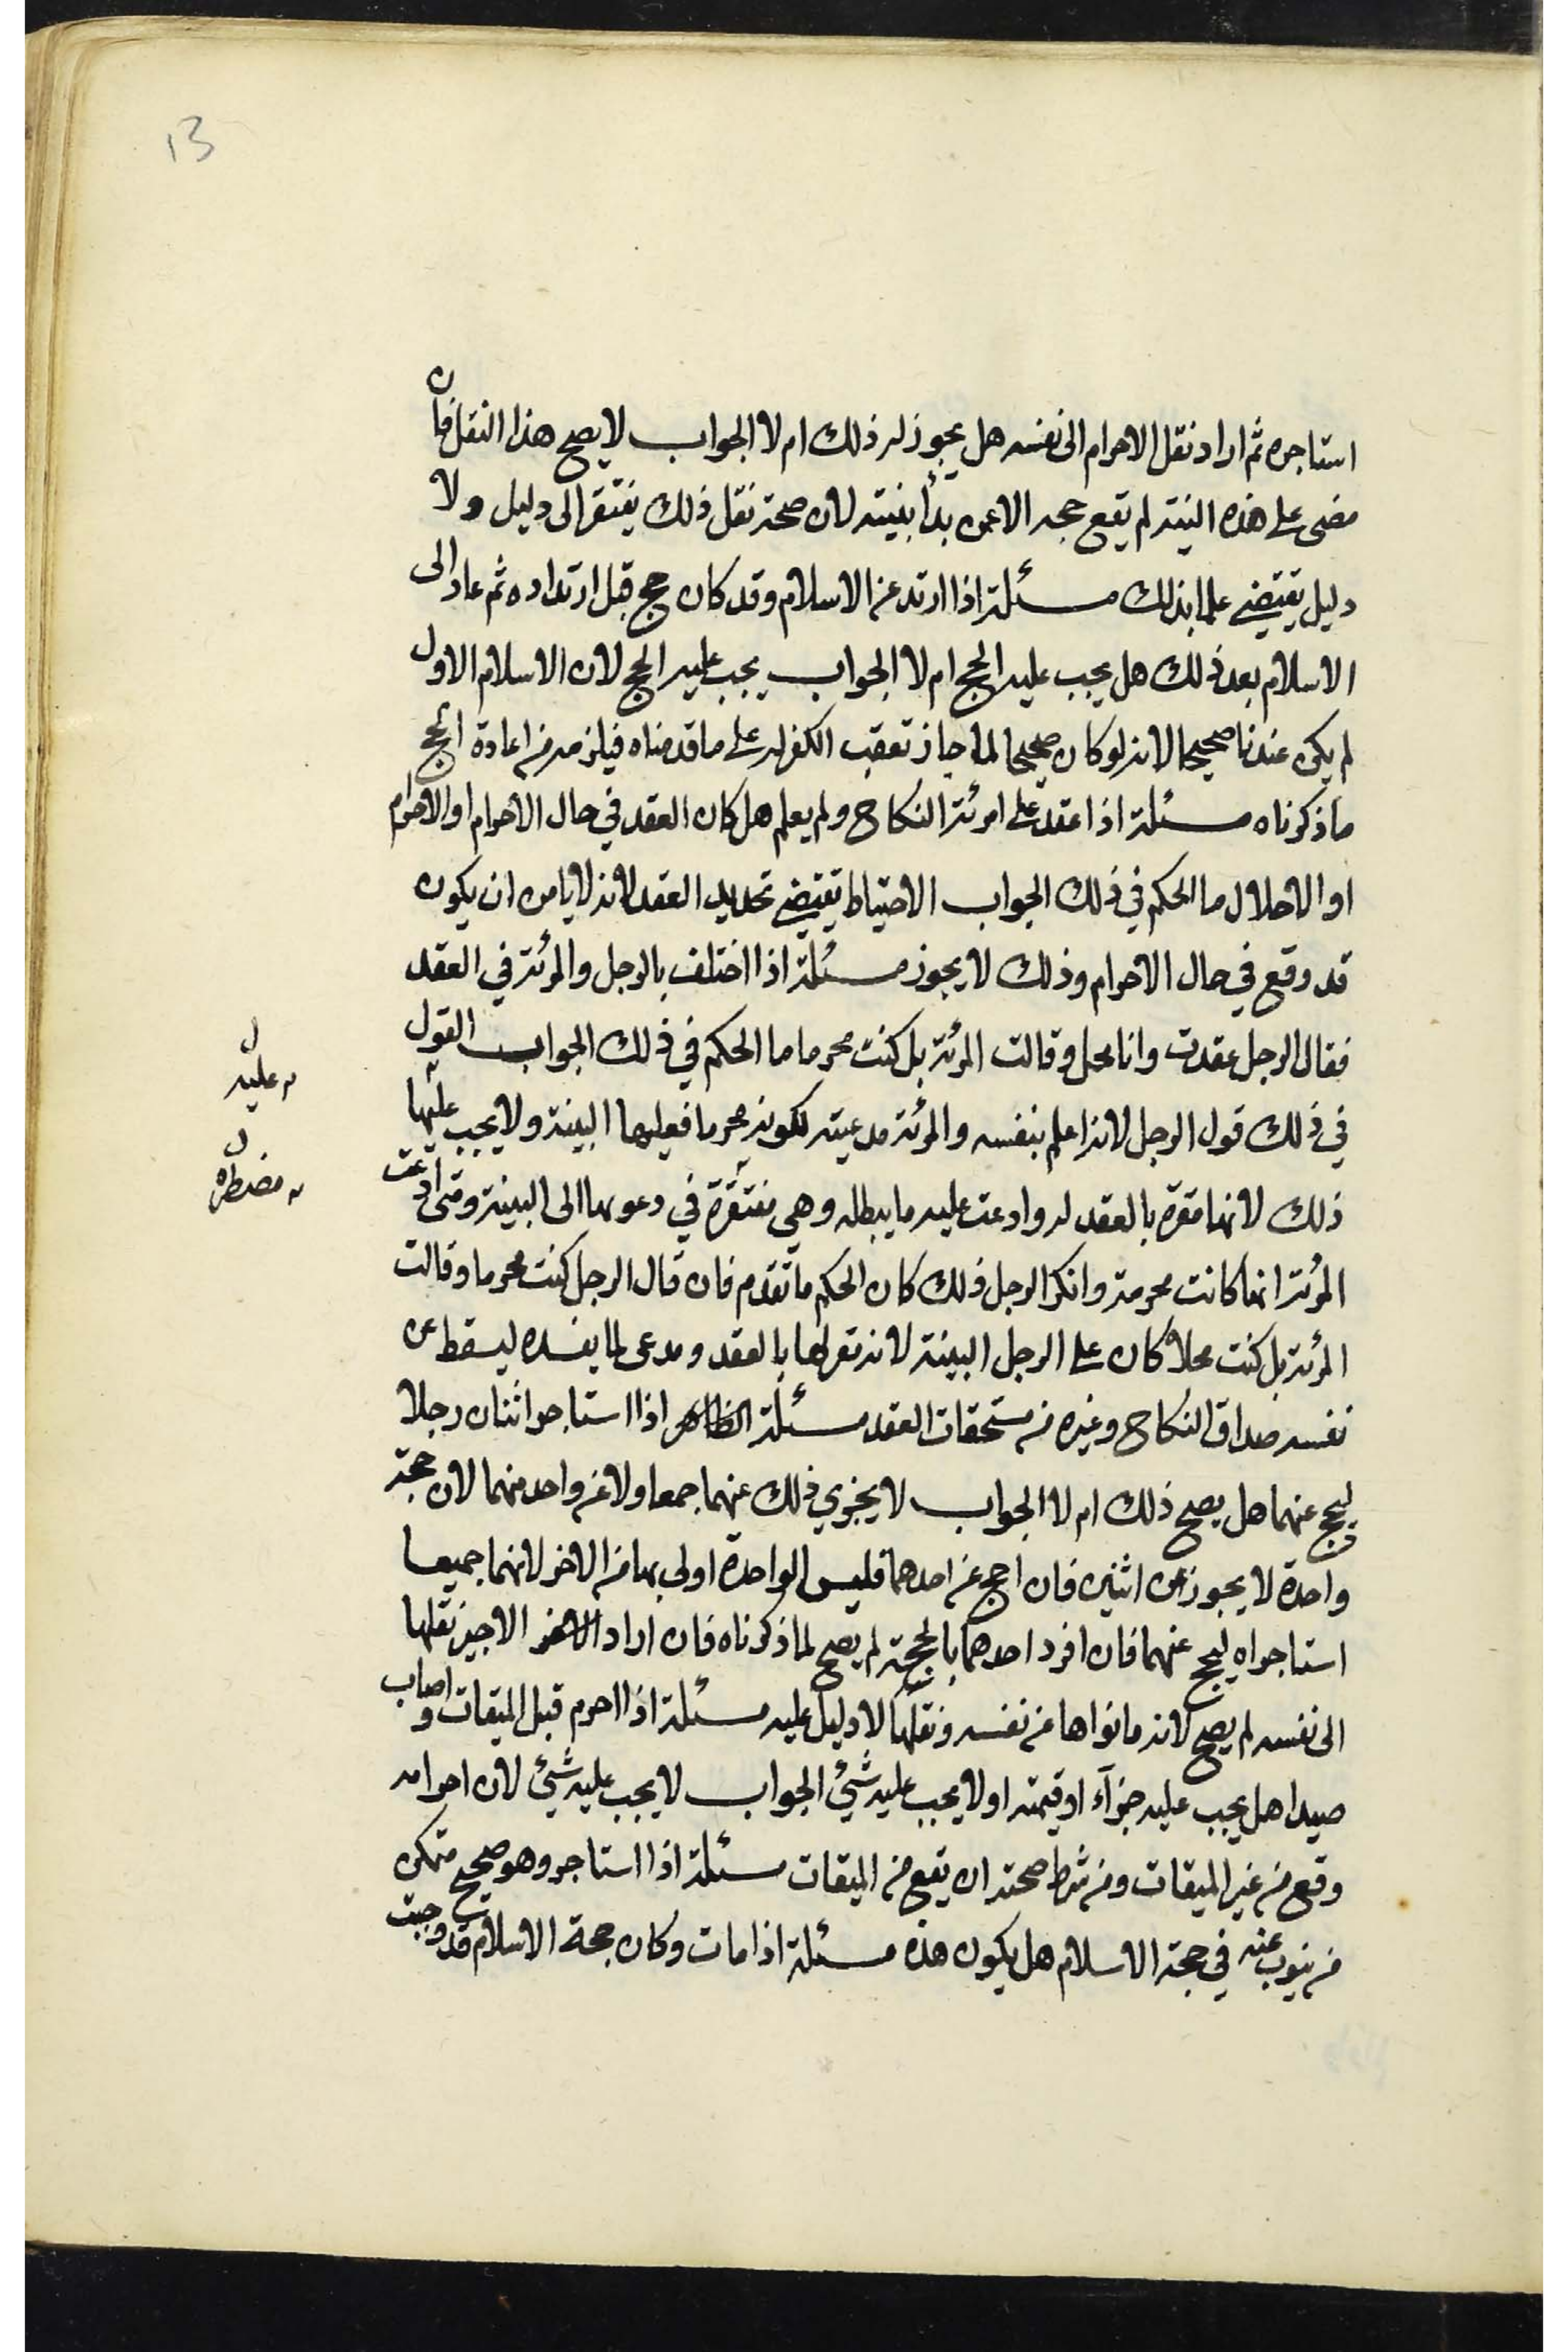 13
استاجره ثم اراد نقل الاحرام الى نفسه هل يجوز له ذلك ام لا الجواب لا يصح هذا النقل فان
مضى على هذه النيته لم يقع حجه الا عمن بدأ بنيته لان صحة نقل ذلك يفتقر الى دليل ولا
دليل يقتضي علما بذلك مسئلة اذا ارتد عن الاسلام وقد كان حج قبل ارتداده ثم عاد الى
الاسلام بعد ذلك هل يجب عليه الحج ام لا الجواب يجب عليه الحج لان الاسلام الاول
لم يكن عندنا صحيحا لانه لو كان صحيحا لما جاز تعقب الكفر له على ما قدمناه فيلزمه من اعادة الحج
ما ذكرناه مسئلة اذا عقد على امرئة النكاح ولم يعلم هل كان العقد في حال الاحرام او الاحرام
او الاحلال ما الحكم في ذلك الجواب الاحتياط يقتضي تجديد العقد لانه لا يامن ان يكون
قد وقع في حال الاحرام وذلك لا يجوز مسئلة اذا اختلف بالرجل والمرئة في العقد
فقال الرجل عقدت وانا محل وقالت المرئة بل كنت محرما ما الحكم في ذلك الجواب القول
في ذلك قول الرجل لانه اعلم بنفسه والمرئة مدعيته لكونه محرما فعليها البينة ولا يجب عليها
ذلك لانها مقرة بالعقد له وادعت عليه ما يبطله وهي مفتقرة في دعوىها الى البينة ومتى ادعت
المرئة انها كانت محرمة وانكر الرجل ذلك كان الحكم ما تقدم فان قال الرجل كنت محرما وقالت
المرئة بل كنت محلا كان على الرجل البينة لانه تقر لها بالعقد ومدعى لما يفسده ليسقط عن
نفسه صداق النكاح وغيره من مستحقات العقد مسئلة اذا استاجر اثنان رجلا
ليحج عنهما هل يصح ذلك ام لا الجواب لا يجزي ذلك عنهما جمعا ولا عن واحد منهما لان حجة
واحدة لا يجوز عن اثنين فان احج عن احدهما فليس الواحدة اولى بها من الاخر لانهما جميعا
استاجراه ليحج عنهما فان افرد احدهما بالحجة لم يصح لما ذكرناه فان اراد الاجير نقلها
الى نفسه لم يصح لانه ما نواها عن نفسه ونقلها لا دليل عليه مسئلة اذا احرم قبل الميقات واصاب
صيدا هل يجب عليه جزآء او قيمته او لا يجب عليه شيئ الجواب لا يجب عليه شيئ لان احرامه
وقع من غير الميقات ومن شرط صحته ان يقع من الميقات مسئلة اذا استاجر وهو صحيح متمكن
من ينوب عنه في حجة الاسلام هل يكون هذه مسئلة اذا مات وكان حجة الاسلام قد وجبت
عليه
مضطره